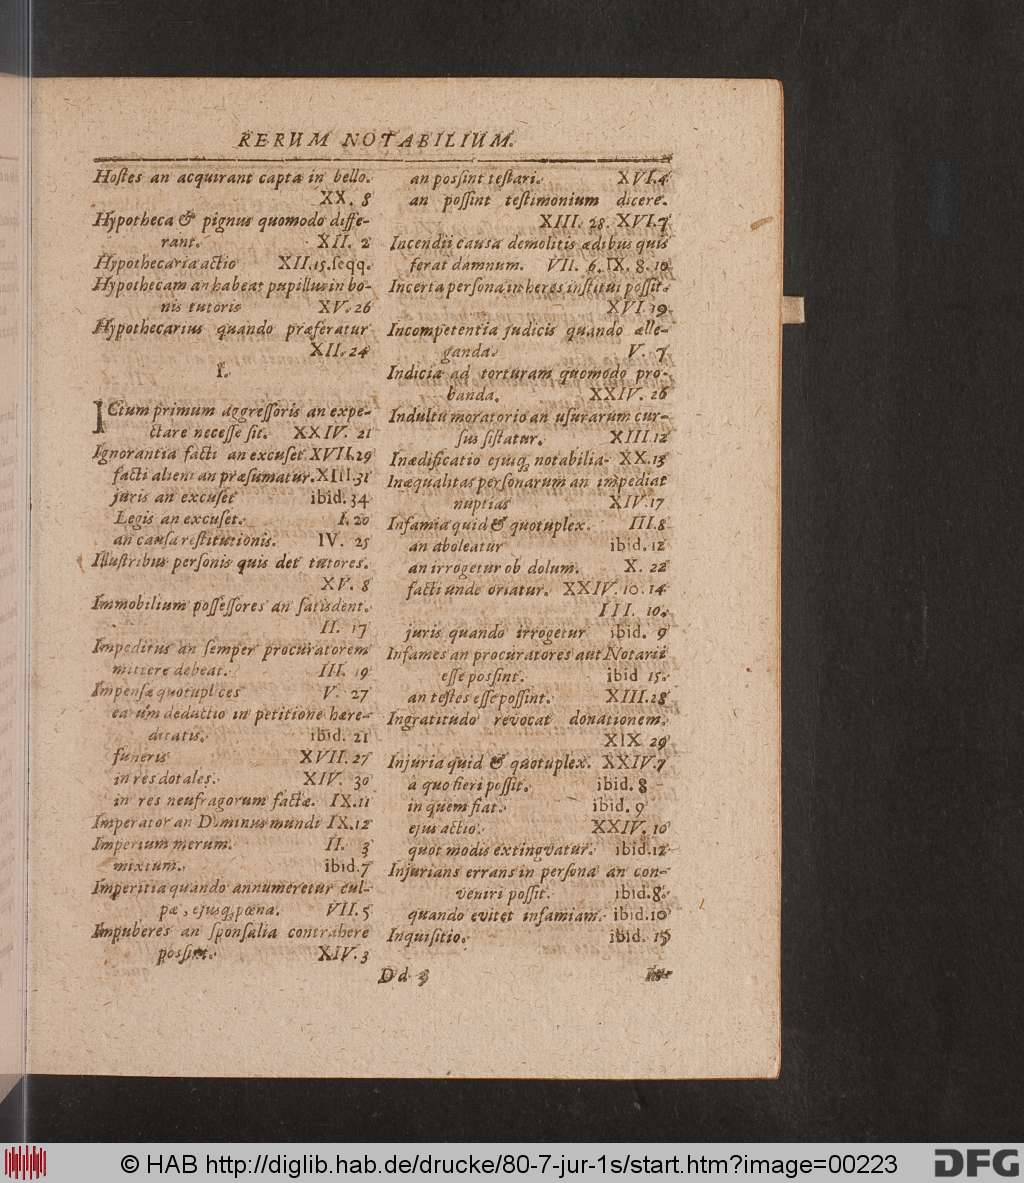 RERUM NOTABILIUM.
Hostes an acquirant capta in bello.
XX. 8
Hypotheca & pignus quomodo diffe-
rant. XII. 2
Hypothecaria actio XII.15.seqq.
Hypothecam an habeat pupillus in bo-
nis tutoris XV. 26
Hypothecarius quando præferatur
XII. 24
I.
ICtum primum aggressoris an expe-
ctare necesse sit. XXIV. 21
Ignorantia facti an excuset XVII.29
facti alieni an præsumatur. XIII.31
juris an excuset ibid. 34
Legis an excuset. I. 20
an causa restitutionis. IV. 25
Illustribus personis quis det tutores.
XV. 8
Immobilium possessores an satisdent.
II. 17
Impeditus an semper procuratorem
mittere debeat. III. 19
Impensæ quotuplices V. 27
earum deductio in petitione hære-
ditatis. ibid. 21
funeris XVII. 27
in res dotales. XIV. 30
in res neufragorum factæ. IX.11
Imperator an Dominus mundi IX.12
Imperium merum. II. 3
mixtum. ibid.7
Imperitia quando annumeretur cul-
pæ, ejusq; pœna. VII. 5
Impuberes an sponsalia contrahere
possint. XIV. 3
an possint testari. XVI.4
an possint testimonium dicere.
XIII. 28. XVI.7
Incendii causa demolitis ædibus quis
ferat damnum. VII. 6. IX. 8. 10
Incerta persona in heres institui possit.
XVI. 19
Incompetentia judicis quando alle-
ganda. V. 7
Indicia ad torturam quomodo pro-
banda. XXIV. 26
Indultu moratorio an usurarum cur-
sus sistatur. XIII.12
Inædificatio ejusq; notabilia. XX.13
Inæqualitas personarum an impediat
nuptias XIV.17
Infamia quid & quotuplex. III.8
an aboleatur ibid. 12
an irrogetur ob dolum. X. 22
facti unde oriatur. XXIV. 10. 14
III. 10.
juris quando irrogetur ibid. 9
Infames an procuratores aut Notarii
esse possint. ibid 15.
an testes esse possint. XIII.28
Ingratitudo revocat donationem.
XIX 29
Injuria quid & quotuplex. XXIV.7
à quo fieri possit. ibid. 8
in quem fiat. ibid. 9
ejus actio. XXIV. 10
quot modis extingvatur. ibid.12
Injurians errans in persona an con-
veniri possit. ibid.8.
quando evitet infamiam. ibid.10
Inquisitio. ibid. 15
Dd 3
© HAB http://diglib.hab.de/drucke/80-7-jur-1s/start.htm?image=00223
DFG